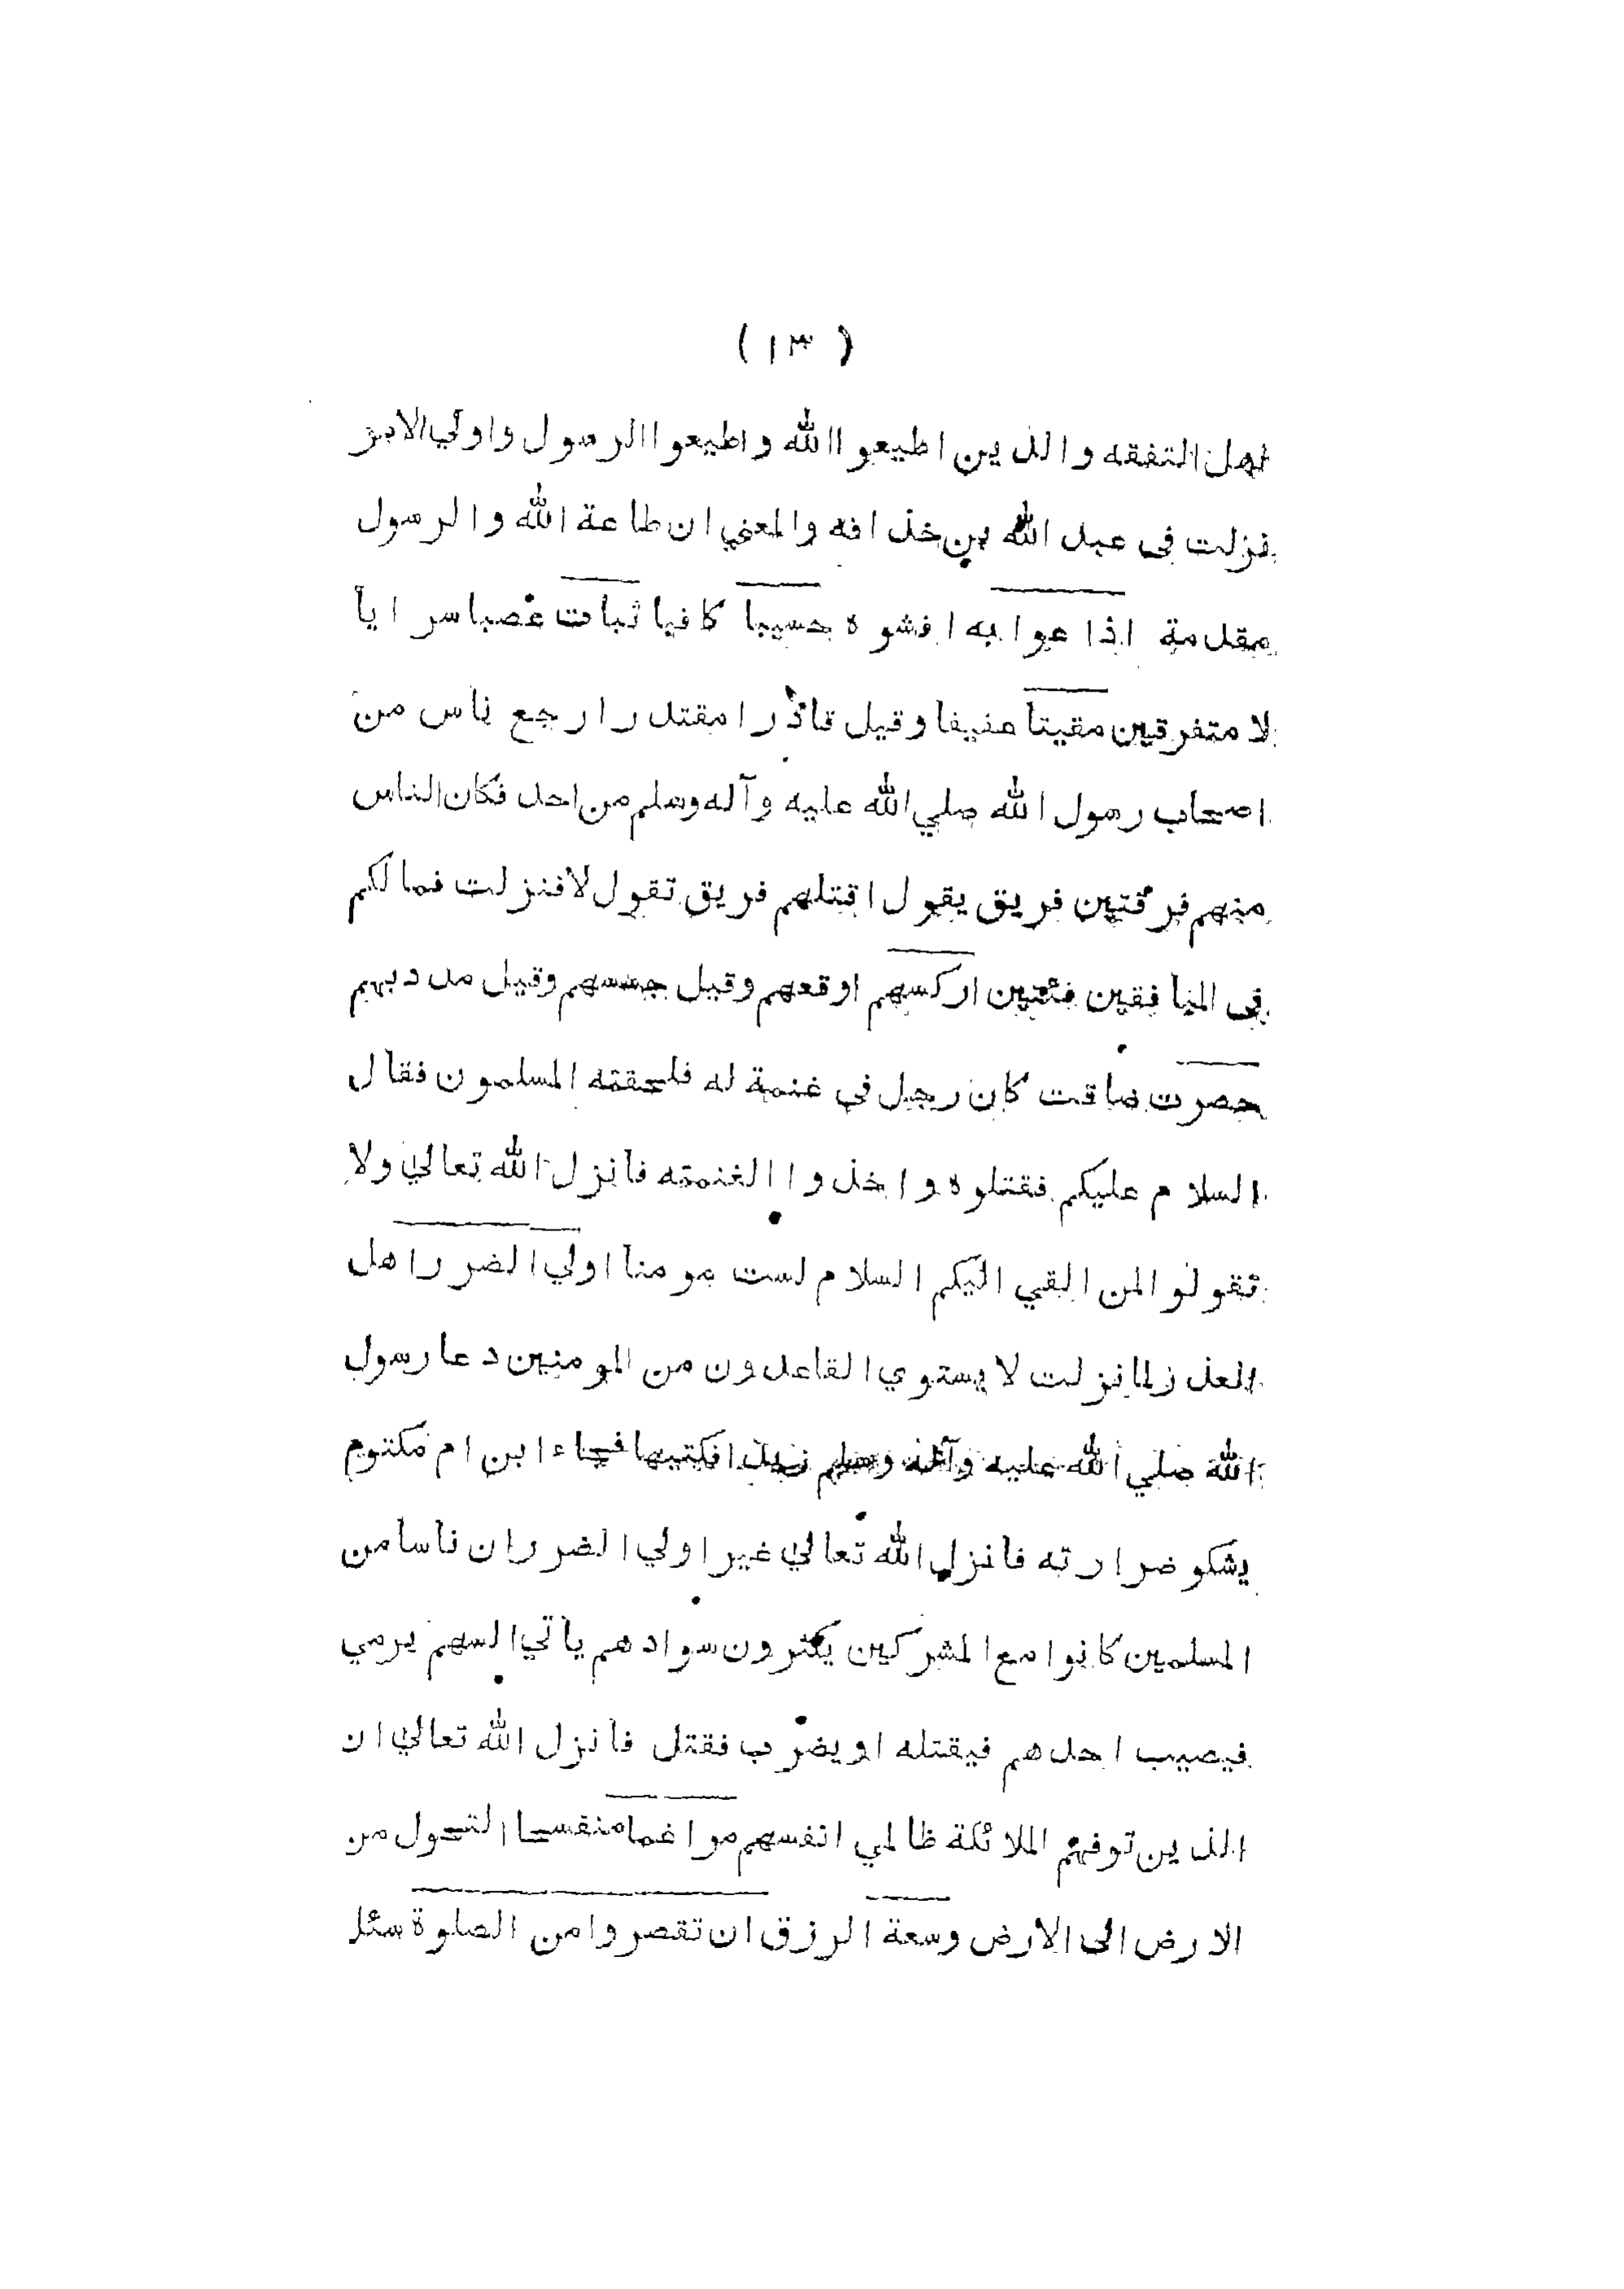 ( ١٣ )
اهل التفقه والذين اطيعوا الله واطيعوا الرسول واولي الامر
نزلت في عبد الله بن خذافه والمعني ان طاعة الله والرسول
مقدمة اذاعوا به افشوه حسيبا كافيا ثبات عصبا سرايا
لا متفرقين مقيتا عفيفا وقيل قاذرا مقتدرا رجع ناس من
اصحاب رسول الله صلي الله عليه وآله وسلم من احد فكان الناس
منهم فرقتين فريق يقول اقتلهم فريق تقول لا فنزلت فمالكم
في المنافقين فئتين اركسهم اوقعهم وقيل وقيل مددبهم
حصرت ضاقت كان رجل في غنمة له فلحقته المسلمون فقال
السلام عليكم فقتلوه واخذوا الغنمته فانزل الله تعالي ولا
تقولوا لمن القي اليكم السلام لست مومنا اولي الضرر اهل
العذر لما نزلت لا يستوي القاعدون من المومنين دعا رسول
الله صلي الله عليه وآله وسلم فكتبها فجاء ابن ام مكتوم
يشكو ضرارته فانزل الله تعالي غير اولي الضرر ان ناسا من
المسلمين كانوا مع المشركين يكثرون سوادهم ياتي السهم يرمي
فيصيب احدهم فيقتله او يضرب فقتل فانزل الله تعالي ان
الذين توفهم الملائكة ظالمي انفسهم مراغما منفسحا التحول من
الارض الى الارض وسعة الرزق ان تقصروا من الصلوة سئل